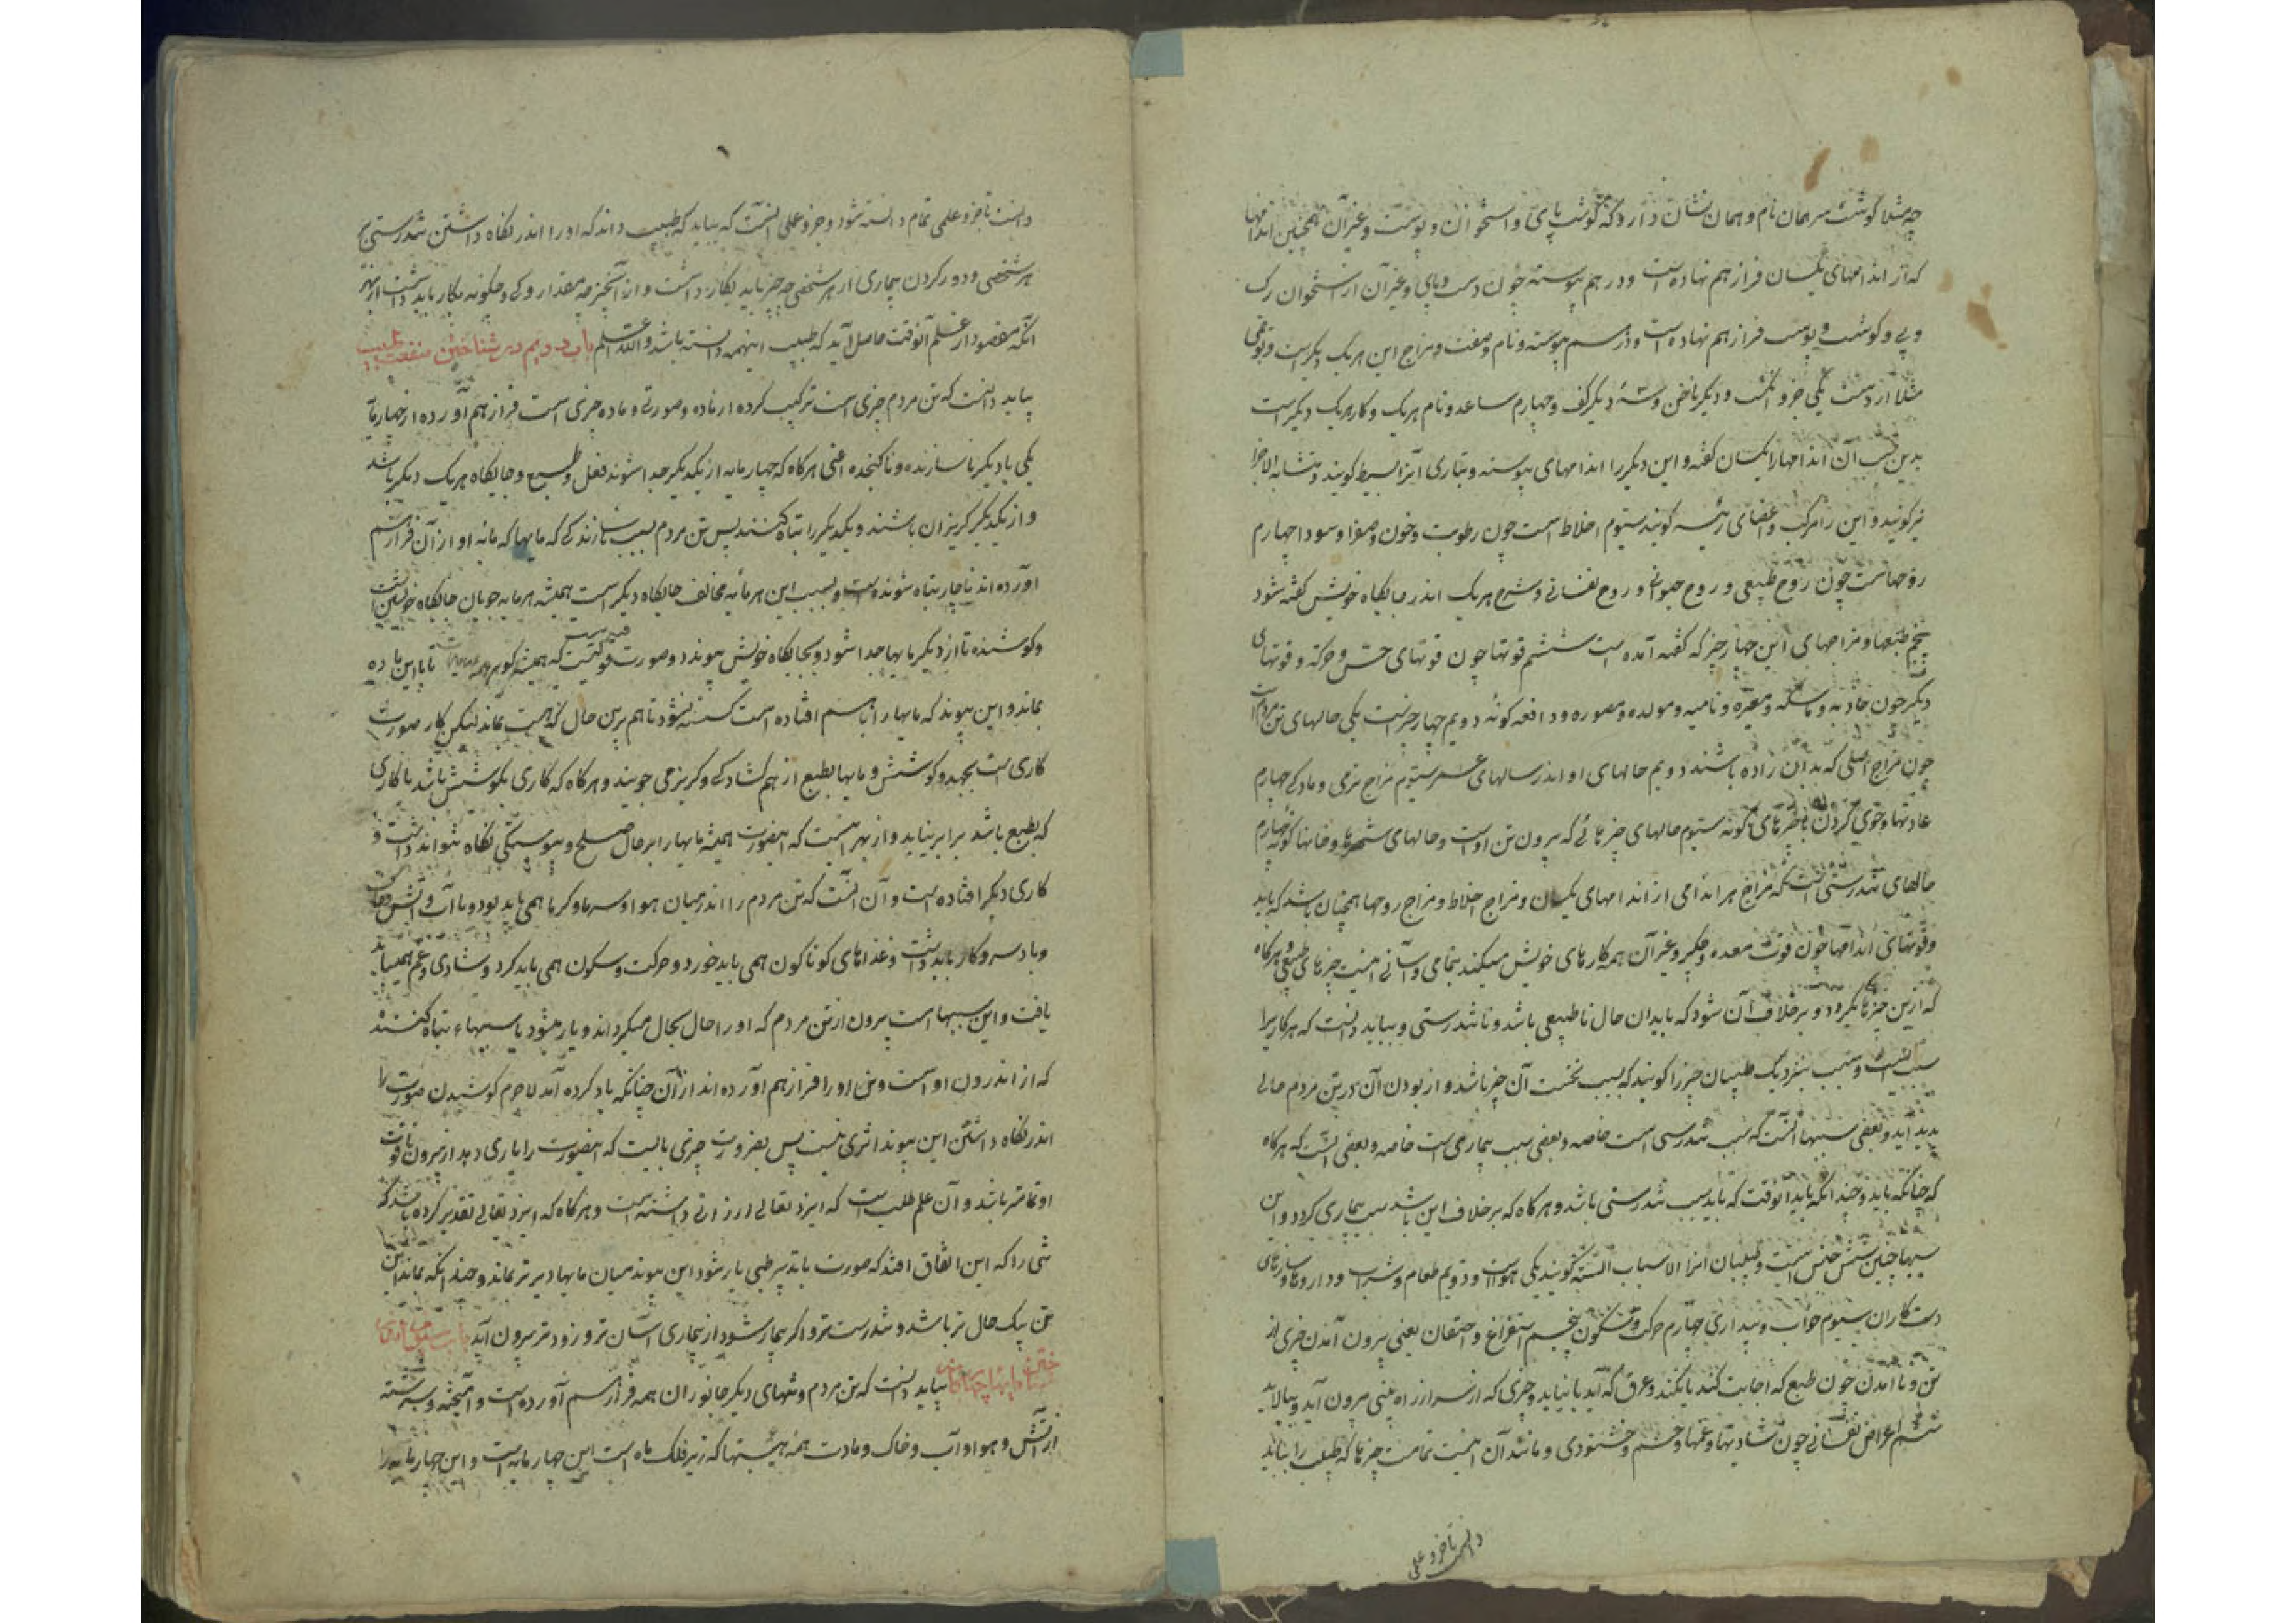 چه مثلا گوشت سر همان نام و همان نشان دارد که گوشت پای و استخوان و پوست و غیر آن همچنین اندامها
که از اندامهای یکسان فراز هم نهاده است و در هم پیوسته چون دست و پای و غیر آن از استخوان رک
و پی و گوشت و پوست فراز هم نهاده است و در هم پیوسته و نام و صفت و مزاج این هر یک دیگر است
مثلا از دست یکی جزو انگشت و دیگر ناخن و سه دیگر کف و چهارم ساعد و نام هر یک و کار هر یک دیگر است
بدین سبب آن اندامها را یکسان گفته و این دیگر را اندامهای پیوسته و بتازی آنرا بسیط گویند و متشابه الاجزا
نیز گویند و این را مرکب و اعضای رئیسه گویند سیوم اخلاط است چون رطوبت و خون و صفرا و سودا چهارم
روحهاست چون روح طبیعی و روح حیوانی و روح نفسانی و شرح هر یک اندر جایگاه خویش گفته شود
پنجم طبعها و مزاجهای این چهار چیز که گفته آمده است ششم قوتها چون قوتهای حس و حرکه و قوتهای
دیگر چون جاذبه و ماسکه و مغیره و نامیه و مولده و مصوره و دافعه گونه دویم چهار چیز است یکی حالهای تن مردم است
چون مزاج اصلی که بدان زاده باشند دویم حالهای او اندر سالهای عمر سیوم مزاج نری و مادگی چهارم
عادتها و خوی کردن با چیزهای گونه سیوم حالهای چیزهائی که بیرون تن اوست و حالهای شهرها و خانها گونه چهارم
حالهای تندرستی است که مزاج هر اندامی از اندامهای یکسان و مزاج اخلاط و مزاج روحها همچنان باشد که باید
و قوتهای اندامها چون قوت معده و جگر و غیر آن همه کارهای خویش میکنند بتمامی و آسانی اینست چیزهای طبیعی و هرگاه
که ازین چیزها بگردد و بر خلاف آن شود که باید آن حال ناطبیعی باشد و ناتندرستی و بباید دانست که هر کاری را
سببی است و سبب بنزدیک طبیبان چیز را گویند که بسبب نخست آن چیز باشد و از بودن آن در تن مردم حالی
پدید آید و بعضی سببها آنست که سبب تندرستی است خاصه و بعضی سبب بیماری است خاصه و بعضی آنست که هرگاه
که چنانکه باید و چندانکه باید و آنوقت که باید سبب تندرستی باشد و هرگاه که بر خلاف این باشد سبب بیماری گردد و این
سببها چنین شش جنس است و طبیبان آنرا الاسباب السته گویند یکی هواست و دویم طعام و شراب و داروها و سازهای
دست کاران سیوم خواب و بیداری چهارم حرکت و سکون پنجم استفراغ و احتقان یعنی بیرون آمدن چیزی از
تن و نا آمدن چون طبع که اجابت کند یا نکند و عرق که آید یا نیاید و چیزی که از سر از راه بینی بیرون آید و بپالاید
ششم اعراض نفسانی چون شادیها و غمها و خشم و خشنودی و مانند آن اینست تمامت چیزها که طبیب را بباید
دانست تا جزو علمی
دانست تا جزو علمی تمام دانسته شود و جزو عملی آنست که بباید که طبیب داند که او را اندر نگاه داشتن تندرستی
هر شخصی و دور کردن بیماری از هر شخصی چه چیز باید بکار داشت و از آنچیز چه مقدار و کی و چگونه بکار باید داشت از بهر
آنکه مقصود از علم آنوقت حاصل آید که طبیب اینهمه دانسته باشد والله اعلم باب دویم در شناختن منفعت طب
بباید دانست که تن مردم چیزی است ترکیب کرده از ماده و صورتی و ماده چیزی است فراز هم آورده از چهار مایه
یکی با دیگر ناسازنده و ناگنجنده اعنی هرگاه که چهار مایه از یکدیگر جدا شوند فعل و طبع و جایگاه هر یک دیگر باشد
و از یکدیگر گریزان باشند و یکدیگر را تباه کنند پس تن مردم بسبب ناسازندگی که مایها که مایه او از آن فراز هم
آورده اند ناچار تباه شونده است و بسبب این هر مایه مخالف جایگاه دیگر است همیشه هر مایه جویان جایگاه خویش است
و کوشنده تا از دیگر مایها جدا شود و بجایگاه خویش پیوندد و صورت قوتیست که همیشه تا با این ماده
بماند و این پیوند که مایها را با هم افتاده است گسسته نشود تا هم برین حال که هست بماند لیکن کار صورت
کاری است بجهد و کوشش و مایها بطبع از هم گشادگی و گریز می جویند و هرگاه که کاری بکوشش باشد با کاری
که بطبع باشد برابر نیاید و از بهر اینست که اینصورت همیشه مایها را بر حال صلح و پیوستگی نگاه نتواند داشت و
کاری دیگر افتاده است و آن آنست که تن مردم را اندر میان هوا و سرما و گرما همی باید بود و با آب و آتش و خاک
و باد سر و کار باید داشت و غذاهای گوناگون همی باید خورد و حرکت و سکون همی باید کرد و شادی و غم همیباید
یافت و این سببها است بیرون از تن مردم که او را حال بحال میگرداند و یار میشود با سببهاء تباه کننده
که از اندرون او است و تن او را فراز هم آورده اند از آن چنانکه یاد کرده آمد لاجرم کوشیدن صورت را
اندر نگاه داشتن این پیوند اثری نیست پس بضرورت چیزی بایست که اینصورت را یاری دهد از بیرون تا قوت
او تمامتر باشد و آن علم طب است که ایزد تعالی ارزانی داشته است و هرگاه که ایزد تعالی تقدیر کرده باشد که
تنی را که این اتفاق افتد که صورت با تدبیر طبی یار شود این پیوند میان مایها دیرتر بماند و چندانکه بماند این
تن بیک حال تر باشد و تندرست تر و اگر بیمار شود از بیماری آسان تر و زودتر بیرون آید باب سیوم
مایها چهارگانه بباید دانست که تن مردم و تنهای دیگر جانوران همه فراز هم آورده است و آمیخته و سرشته
از آتش و هوا و آب و خاک و مادت همه هستیها که زیر فلک ماه است این چهار مایه است و این چهار مایه را